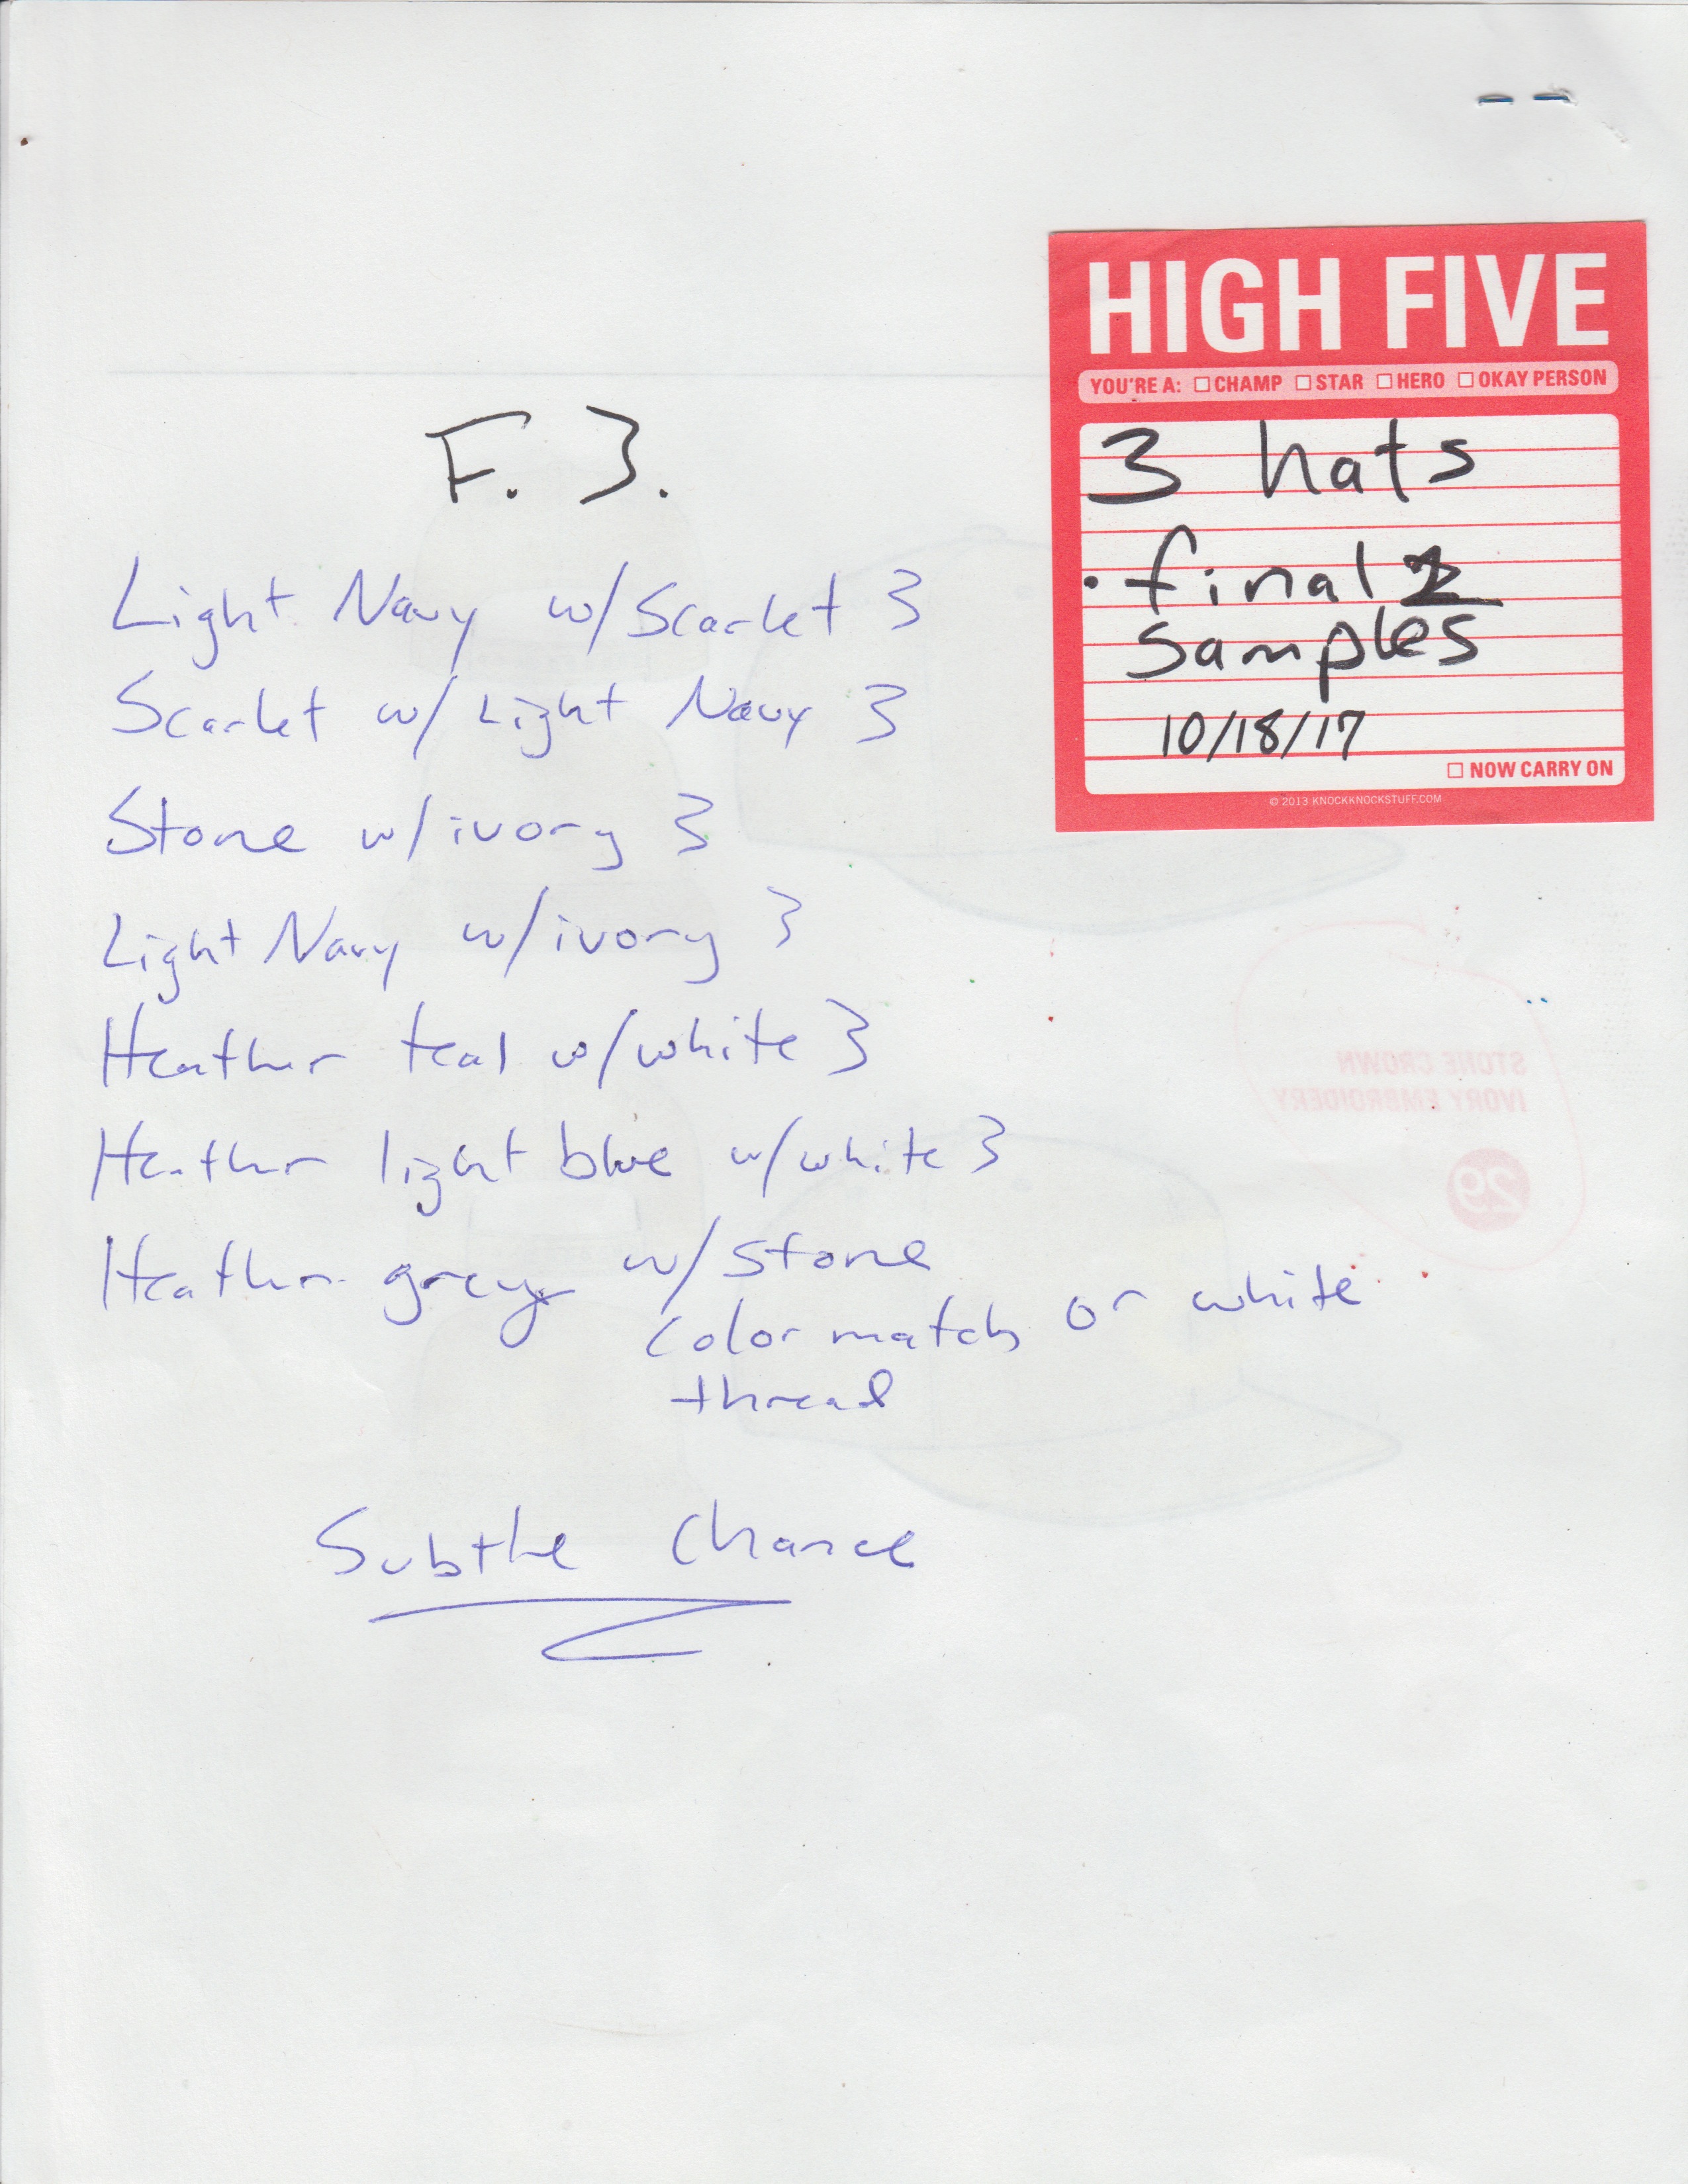 HIGH FIVE
YOU'RE A: CHAMP STAR HERO OKAY PERSON
3 hats
· final 2
samples
10/18/17
NOW CARRY ON
© 2013 KNOCKKNOCKSTUFF.COM
F. 3.
Light Navy w/Scarlet 3
Scarlet w/ Light Navy 3
Stone w/ivory 3
Light Navy w/ivory 3
Heather teal w/white 3
Heather light blue w/white 3
Heather grey w/stone
color match or white
thread
Subtle Chance
STONE CROWN
IVORY EMBROIDERY
29